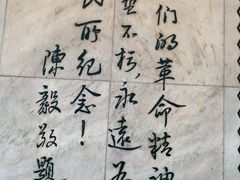 们的革命精神
不朽，永遠为
民所纪念！
陳毅敬題